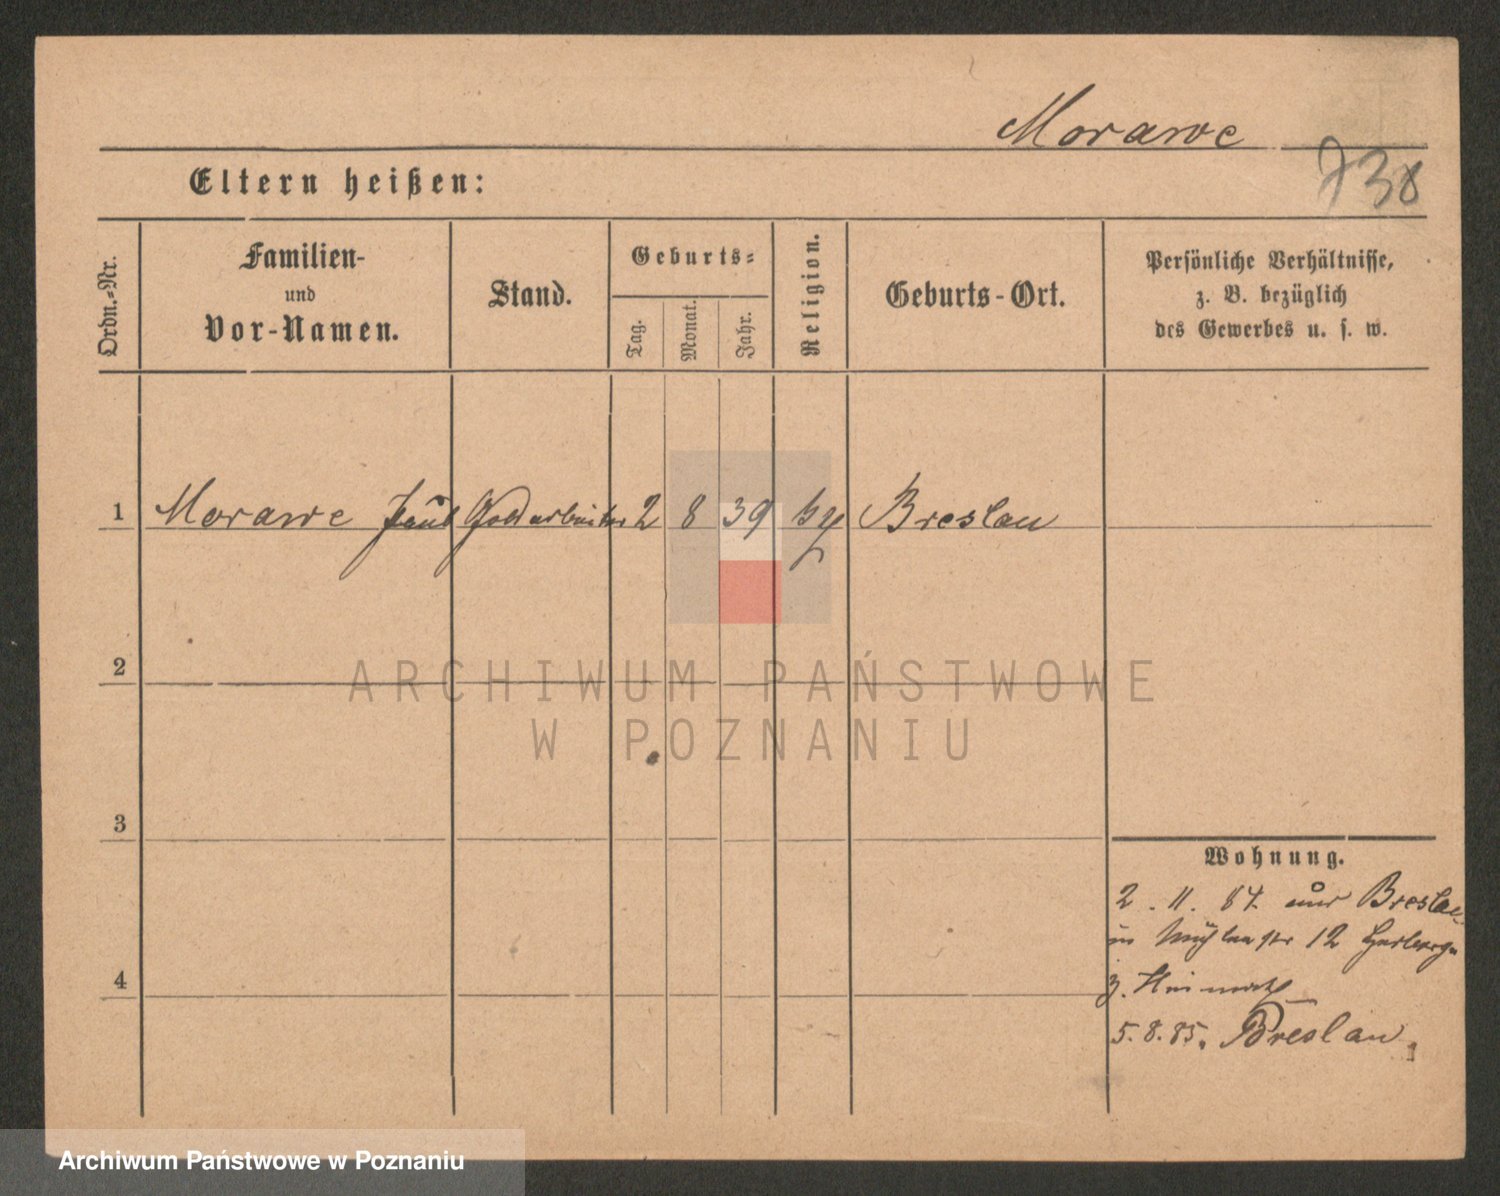 Morawe
738
Eltern heißen:
Ordn.=Nr.
Familien-
und
Vor-Namen.
Stand.
Geburts=
Tag.
Monat.
Jahr.
Religion.
Geburts-Ort.
Persönliche Verhältnisse,
z. B. bezüglich
des Gewerbes u. s. w.
1 Morawe Paul Goldarbeiter 2 8 39 Breslau
2
3
4
ARCHIWUM PAŃSTWOWE
W POZNANIU
Wohnung.
2. 11. 84. aus Breslau
in Mühlenstr 12 Herberge
z. Heimath
5. 8. 85. Breslau.
Archiwum Państwowe w Poznaniu